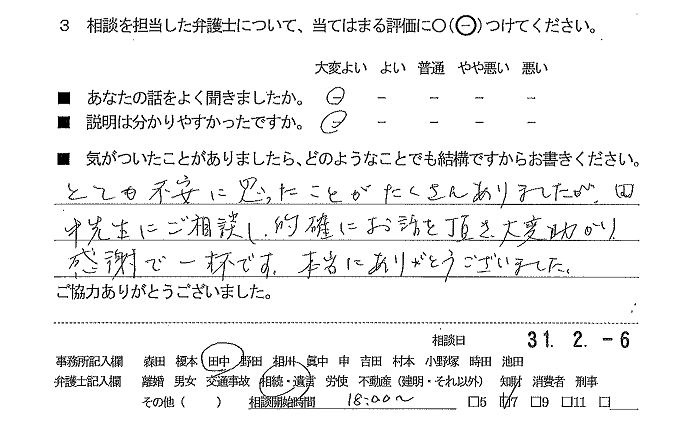 3 相談を担当した弁護士について、当てはまる評価に〇(㊀)つけてください。
大変よい よい 普通 やや悪い 悪い
■ あなたの話をよく聞きましたか。 － － － － －
■ 説明は分かりやすかったですか。 － － － － －
■ 気がついたことがありましたら、どのようなことでも結構ですからお書きください。
とても不安に思ったことがたくさんありましたが、田
中先生にご相談し、的確にお話を頂き、大変助かり
感謝で一杯です。本当にありがとうございました。
ご協力ありがとうございました。
相談日 31. 2. -6
事務所記入欄 森田 榎本 田中 野田 相川 眞中 申 吉田 村本 小野塚 時田 池田
弁護士記入欄 離婚 男女 交通事故 相続・遺言 労使 不動産（建明・それ以外） 知財 消費者 刑事
その他（ ） 相談開始時間 18:00～ □5 □7 □9 □11 □